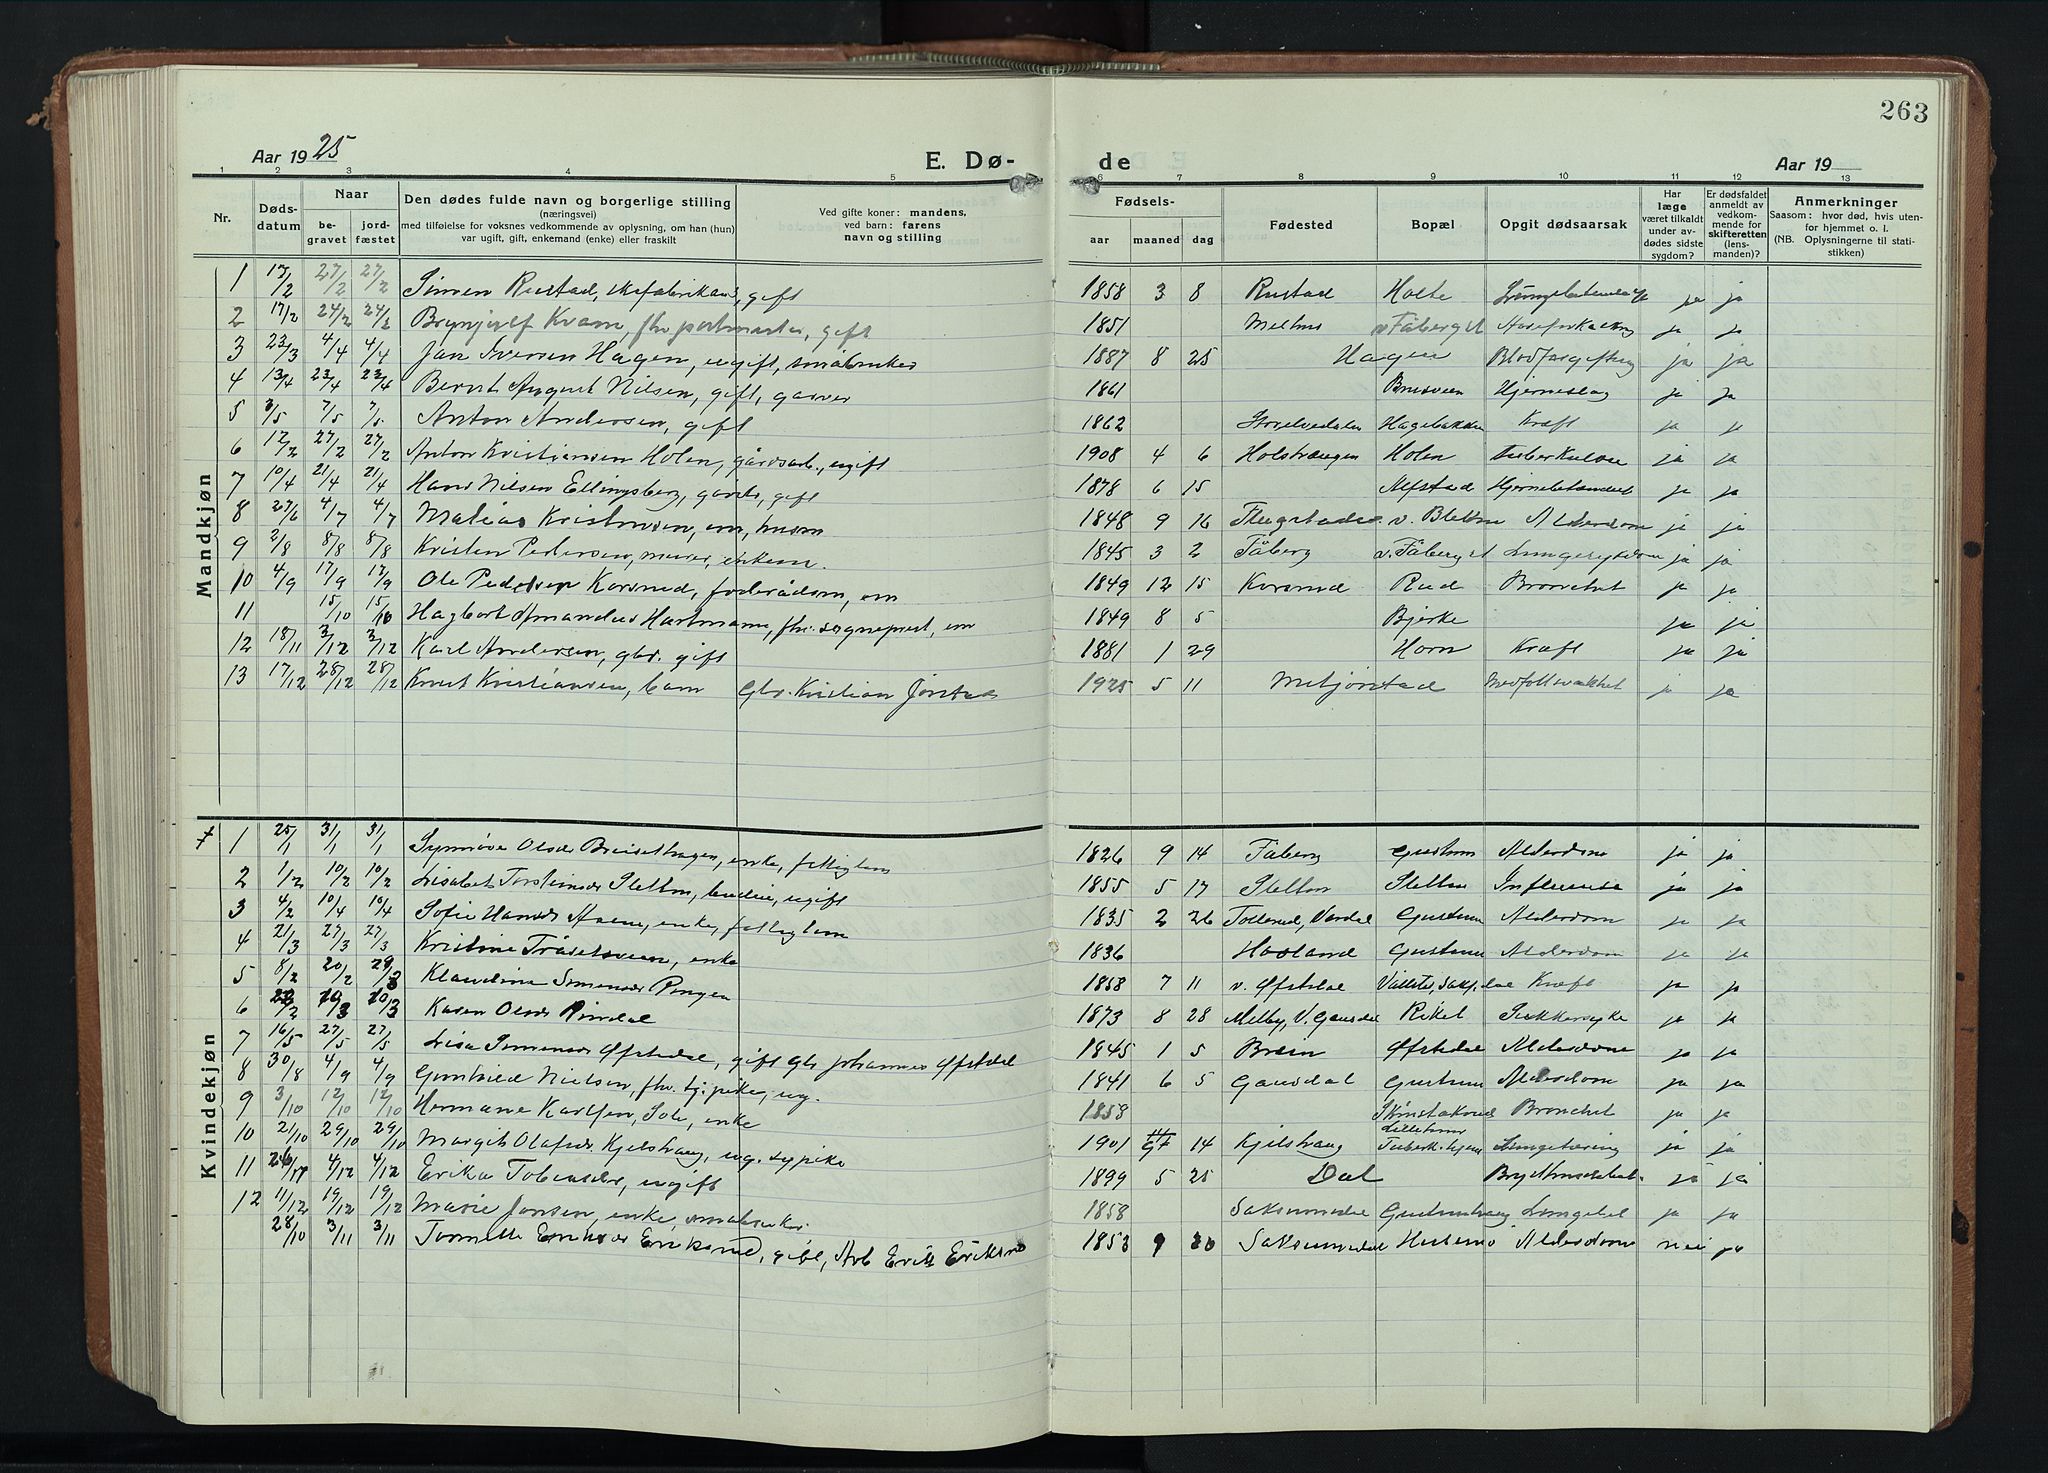 263
Aar 1925 E. Dø- de Aar 19
1 2 3 4 5 6 7 8 9 10 11 12 13
Nr. Døds-datum Naar be-gravet jord-fæstet Den dødes fulde navn og borgerlige stilling (næringsvei) med tilføielse for voksnes vedkommende av oplysning, om han (hun) var ugift, gift, enkemand (enke) eller fraskilt Ved gifte koner: mandens, ved barn: farens navn og stilling Fødsels- aar maaned dag Fødested Bopæl Opgit dødsaarsak Har læge været tilkaldt under avdødes sidste sygdom? Er dødsfaldet anmeldt av vedkommende for skifteretten (lensmanden)? Anmerkninger Saasom: hvor død, hvis utenfor hjemmet o. l. (NB. Oplysningerne til statistikken)
Mandkjøn
1 17/2 27/2 27/2 Simen Rustad, skofabrikant, gift 1858 3 8 Rustad Holte ja ja
2 17/2 24/2 24/2 Brynjulf Kvam, fhv postmester, gift 1851 v Fåberg st Aareforkalkning ja ja
3 23/3 4/4 4/4 Jan Iversen Hagen, ugift, småbruker 1887 8 25 Hagen Blodforgiftning ja ja
4 13/4 23/4 23/4 Bernt August Nilsen, gift, garver 1861 Brusveen Hjerneslag ja ja
5 3/5 7/5 7/5 Anton Andersen, gift 1862 Hagebakken Kræft ja ja
6 12/2 27/2 27/2 Anton Kristiansen Holen, gårdsarb., ugift 1908 4 6 Holstrængen Holen Tuberkulose ja ja
7 10/4 21/4 21/4 Hans Nilsen Ellingsberg, gårdb, gift 1878 6 15 Alfstad Hjernebetændelse ja ja
8 27/6 4/7 4/7 Matias Kristensen, em, husm 1848 9 16 Alderdom ja ja
9 2/8 8/8 8/8 Kristen Pedersen, murer, enkem. 1845 3 2 Fåberg v. Fåberg st Lungesykdom ja ja
10 4/9 17/9 17/9 Ole Pedersen Korsrud, foderådsm, em 1849 12 15 Korsrud Rud Bronchit ja ja
11 15/10 15/10 Hagbart Amandus Hartmann, fhv. sogneprest, em 1849 8 5 Bjerke ja ja
12 18/11 3/12 3/12 Karl Andersen, gbr. gift 1881 1 29 Horn Kræft ja ja
13 17/12 28/12 28/12 Knut Kristiansen, barn Gbr. Kristian Jørstad 1925 5 11 Medfødt svakhet ja ja
Kvindekjøn
1 25/1 31/1 31/1 Synnøve Olsdr Breisethagen, enke, fattiglem 1826 9 14 Fåberg Gustum Alderdom ja ja
2 1/2 10/2 10/2 Lisabet Torsteinsdr Sletten, budeie, ugift 1855 5 17 Sletten Sletten Influensa ja ja
3 4/2 10/4 10/4 Sofie Hansdr enke, fattiglem 1835 2 26 Vardal Gustum Alderdom ja ja
4 21/3 27/3 27/3 Kristine Tråsetsveen, enke 1836 Haaland Gustum Alderdom ja ja
5 8/2 20/2 Klaudine Simensdr Ringen 1858 7 11 v. Øfstdal Kræft ja ja
6 Karen Olsdr Rindal 1873 8 28 Melby, V. Gausdal Rikel Sukkersyke ja ja
7 16/5 27/5 27/5 Lisa Simensdr Øfstedal, gift Gbr Johannes Øfstdal 1845 1 5 Brein Øfstedal Alderdom ja ja
8 30/8 4/9 4/9 Gunhild Nielsen, fhv. tj.pike, ug. 1841 6 5 Gausdal Gustum Alderdom ja ja
9 3/10 12/10 12/10 Hermane Karlsen, Sole, enke 1858 Bronchit ja ja
10 2/10 29/10 29/10 Margit Olafsdr Kjelstrang, ug. sypike 1901 14 Kjelstrang Lillehammer Tuberk.hjem Lungetæring ja ja
11 4/12 4/12 Erika Tobiasdr, ugift 1899 5 25 Dal ja ja
12 11/12 19/12 19/12 Marie Jonsen, enke, småbruker 1858 Saksumdal ja ja
28/10 3/11 3/11 Eriksrud, gift, Arb Erik Eriksrud 1853 9 20 Saksumdal Alderdom nei ja